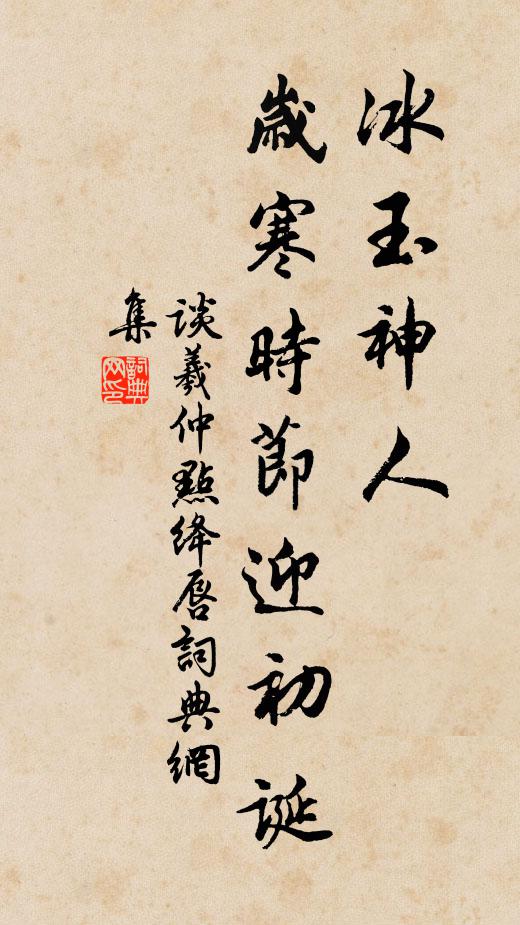 冰玉神人
歲寒時節迎初誕
談羲仲點絳唇詞典網
集
詞典
网印